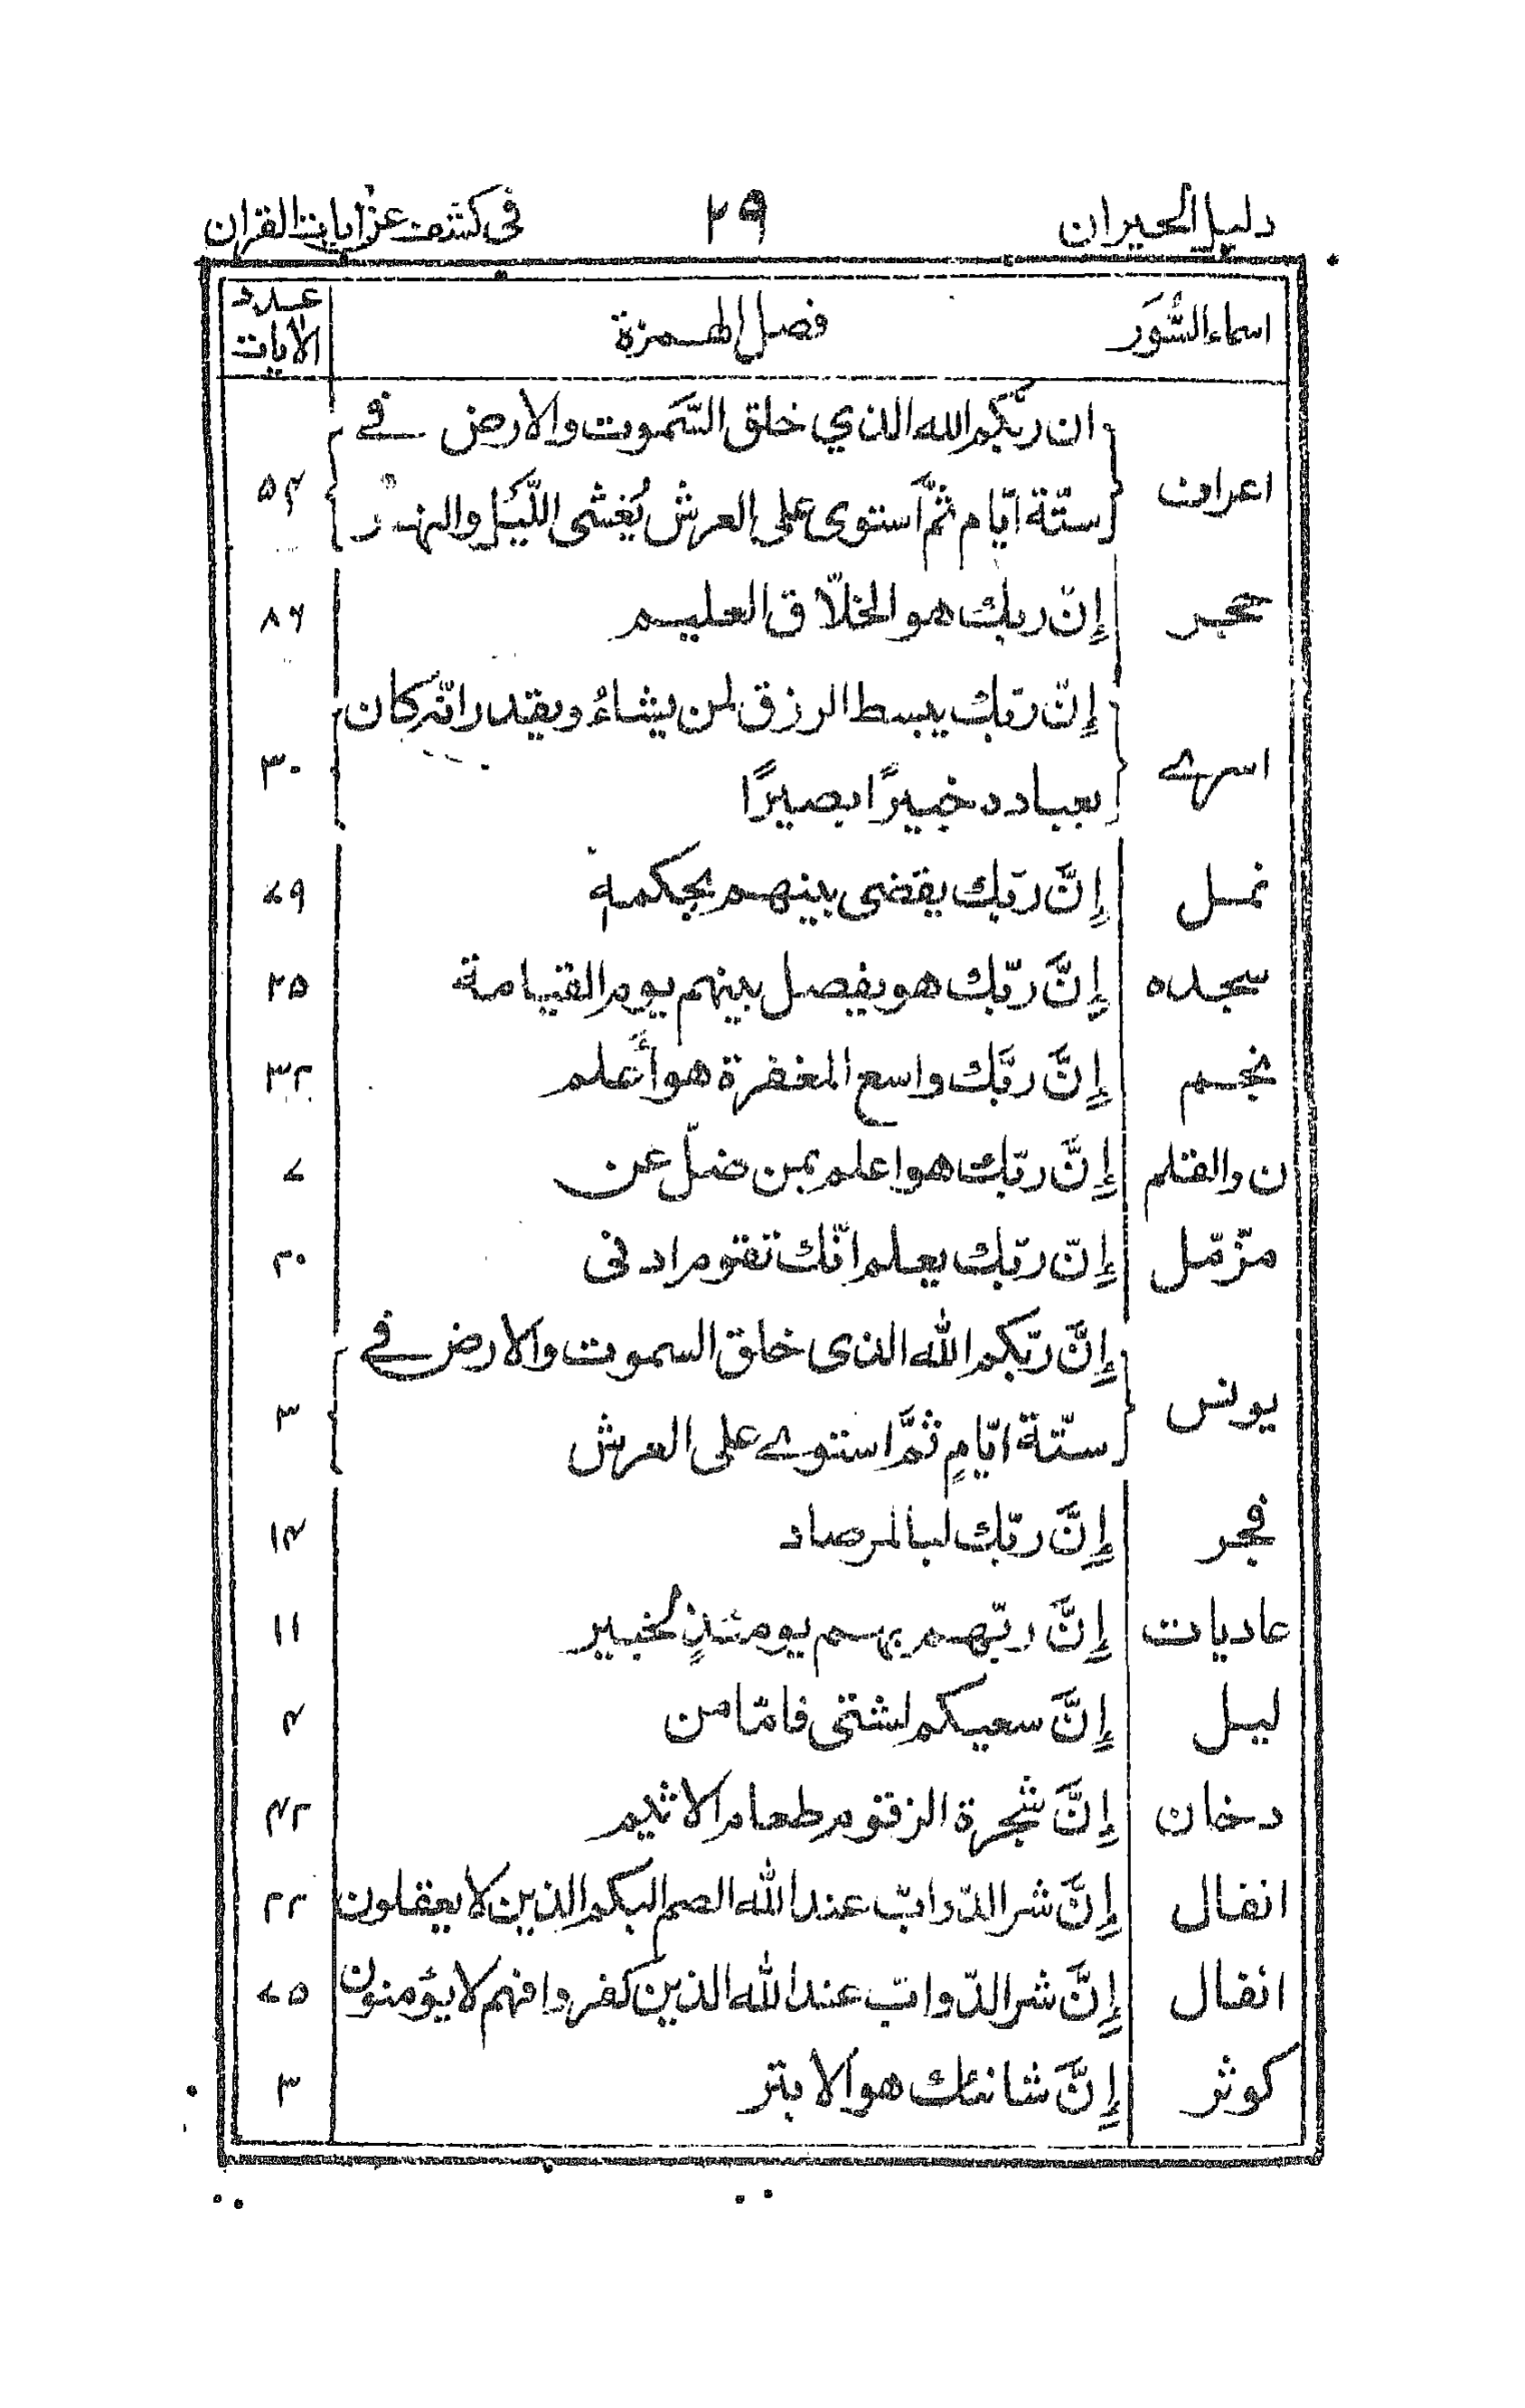 دليل الحيران ٢٩ فى كشف عن ايات القران
اسماء السُّوَر فصل الهمزة عدد الايات
اعراف ان ربّكم الله الذي خلق السَّموت والارض فے
ستّة ايّام ثمَّ استوى على العرش يُغشى اللَّيل والنهار ۵۴
حجر إنّ ربك هو الخلّاق العليم ۸۶
اسرے إنّ ربّك يبسط الرزق لمن يشاءُ ويقدر انّه كان
بعباده خبيرًا بصيرًا ۳۰
نمل إنَّ ربّك يقضى بينهم بحكمه ۷۹
سجده إنَّ ربّك هو يفصل بينهم يوم القيامة ۲۵
نجم إنَّ ربَّك واسع المغفرة هو أَعلم ۳۲
ن والقلم إنَّ ربّك هو اعلم بمن ضلّ عن ۷
مزّمّل إنّ ربّك يعلم انّك تقوم ادنى ۲۰
يونس إنَّ ربّكم الله الذى خلق السموت والارض فے
ستّة ايّامٍ ثمَّ استوے على العرش ۳
فجر إنَّ ربّك لبالمرصاد ۱۴
عاديات إنَّ ربّهم بهم يومئذٍ لخبير ۱۱
ليل إنَّ سعيكم لشتى فامّا من ۴
دخان إنَّ شجرة الزقوم طعام الاثيم ۴۲
انفال إنَّ شر الدّوابّ عند الله الصم البكم الذين لا يعقلون ۲۲
انفال إنَّ شر الدّوابّ عند الله الذين كفروا فهم لا يؤمنون ۷۵
كوثر إنَّ شانئك هو الابتر ۳